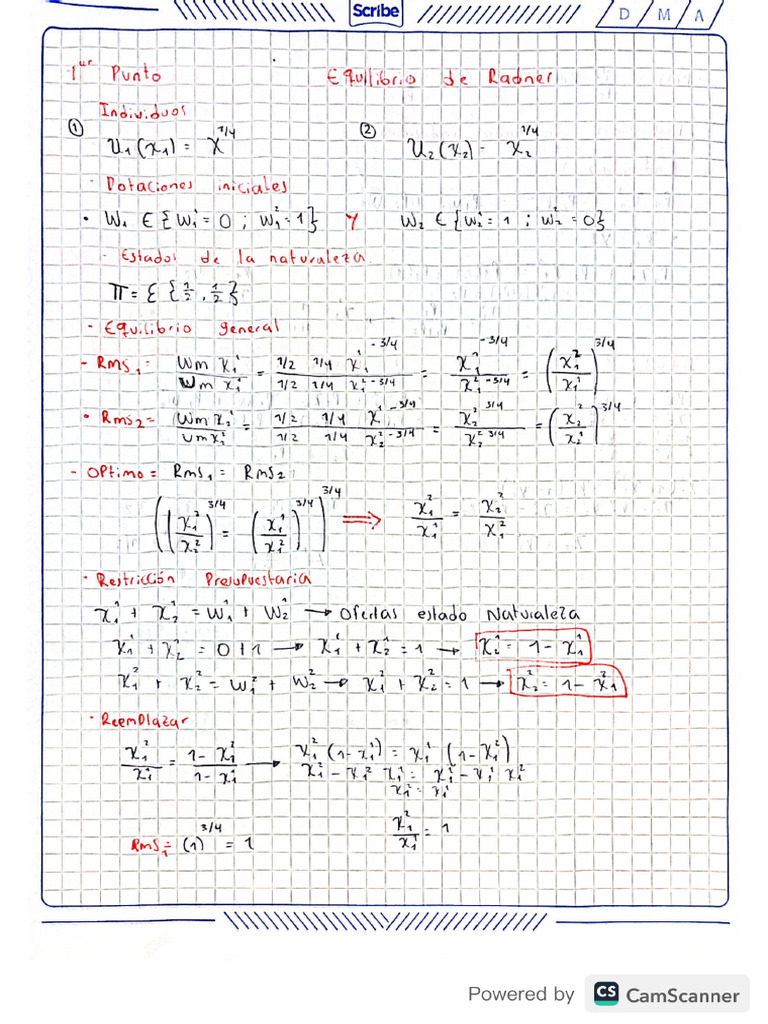 Scribe
D / M / A
1er Punto Equilibrio de Radner
Individuos
① U₁(x₁) = x^1/4 ② U₂(x₂) - x₂^1/4
- Dotaciones iniciales
• W₁ ∈ {W₁¹ = 0 ; W₁² = 1} y W₂ ∈ {W₂¹ = 1 ; W₂² = 0}
- Estados de la naturaleza
π = { {1/2 , 1/2}
- Equilibrio general
- RMS₁ = Um x₁¹ / Um x₁² = 1/2 1/4 x₁¹^-3/4 / 1/2 1/4 x₁²^-3/4 = x₁¹^-3/4 / x₁²^-3/4 = (x₁² / x₁¹)^3/4
• RMS₂ = Um x₂¹ / Um x₂² = 1/2 1/4 x₂¹^-3/4 / 1/2 1/4 x₂²^-3/4 = x₂²^3/4 / x₂²^3/4 = (x₂² / x₂¹)^3/4
- Optimo = RMS₁ = RMS₂
((x₁² / x₂²)^3/4 = (x₁¹ / x₁²)^3/4)^3/4 ⟹ x₁² / x₁¹ = x₂² / x₁²
- Restricción Presupuestaria
x₁¹ + x₂¹ = W₁¹ + W₂¹ → Ofertas estado Naturaleza
x₁¹ + x₂¹ = 0 + 1 → x₁¹ + x₂¹ = 1 → x₂¹ = 1 - x₁¹
x₁² + x₂² = W₁² + W₂² → x₁² + x₂² = 1 → x₂² = 1 - x₁²
• Reemplazar
x₁² / x₁¹ = 1 - x₁² / 1 - x₁¹ → x₁² (1 - x₁¹) = x₁¹ (1 - x₁²)
x₁² - x₁² x₁¹ = x₁¹ - x₁¹ x₁²
x₁² = x₁¹
RMS₁ = (1)^3/4 = 1 x₁² / x₁¹ = 1
Powered by CS CamScanner